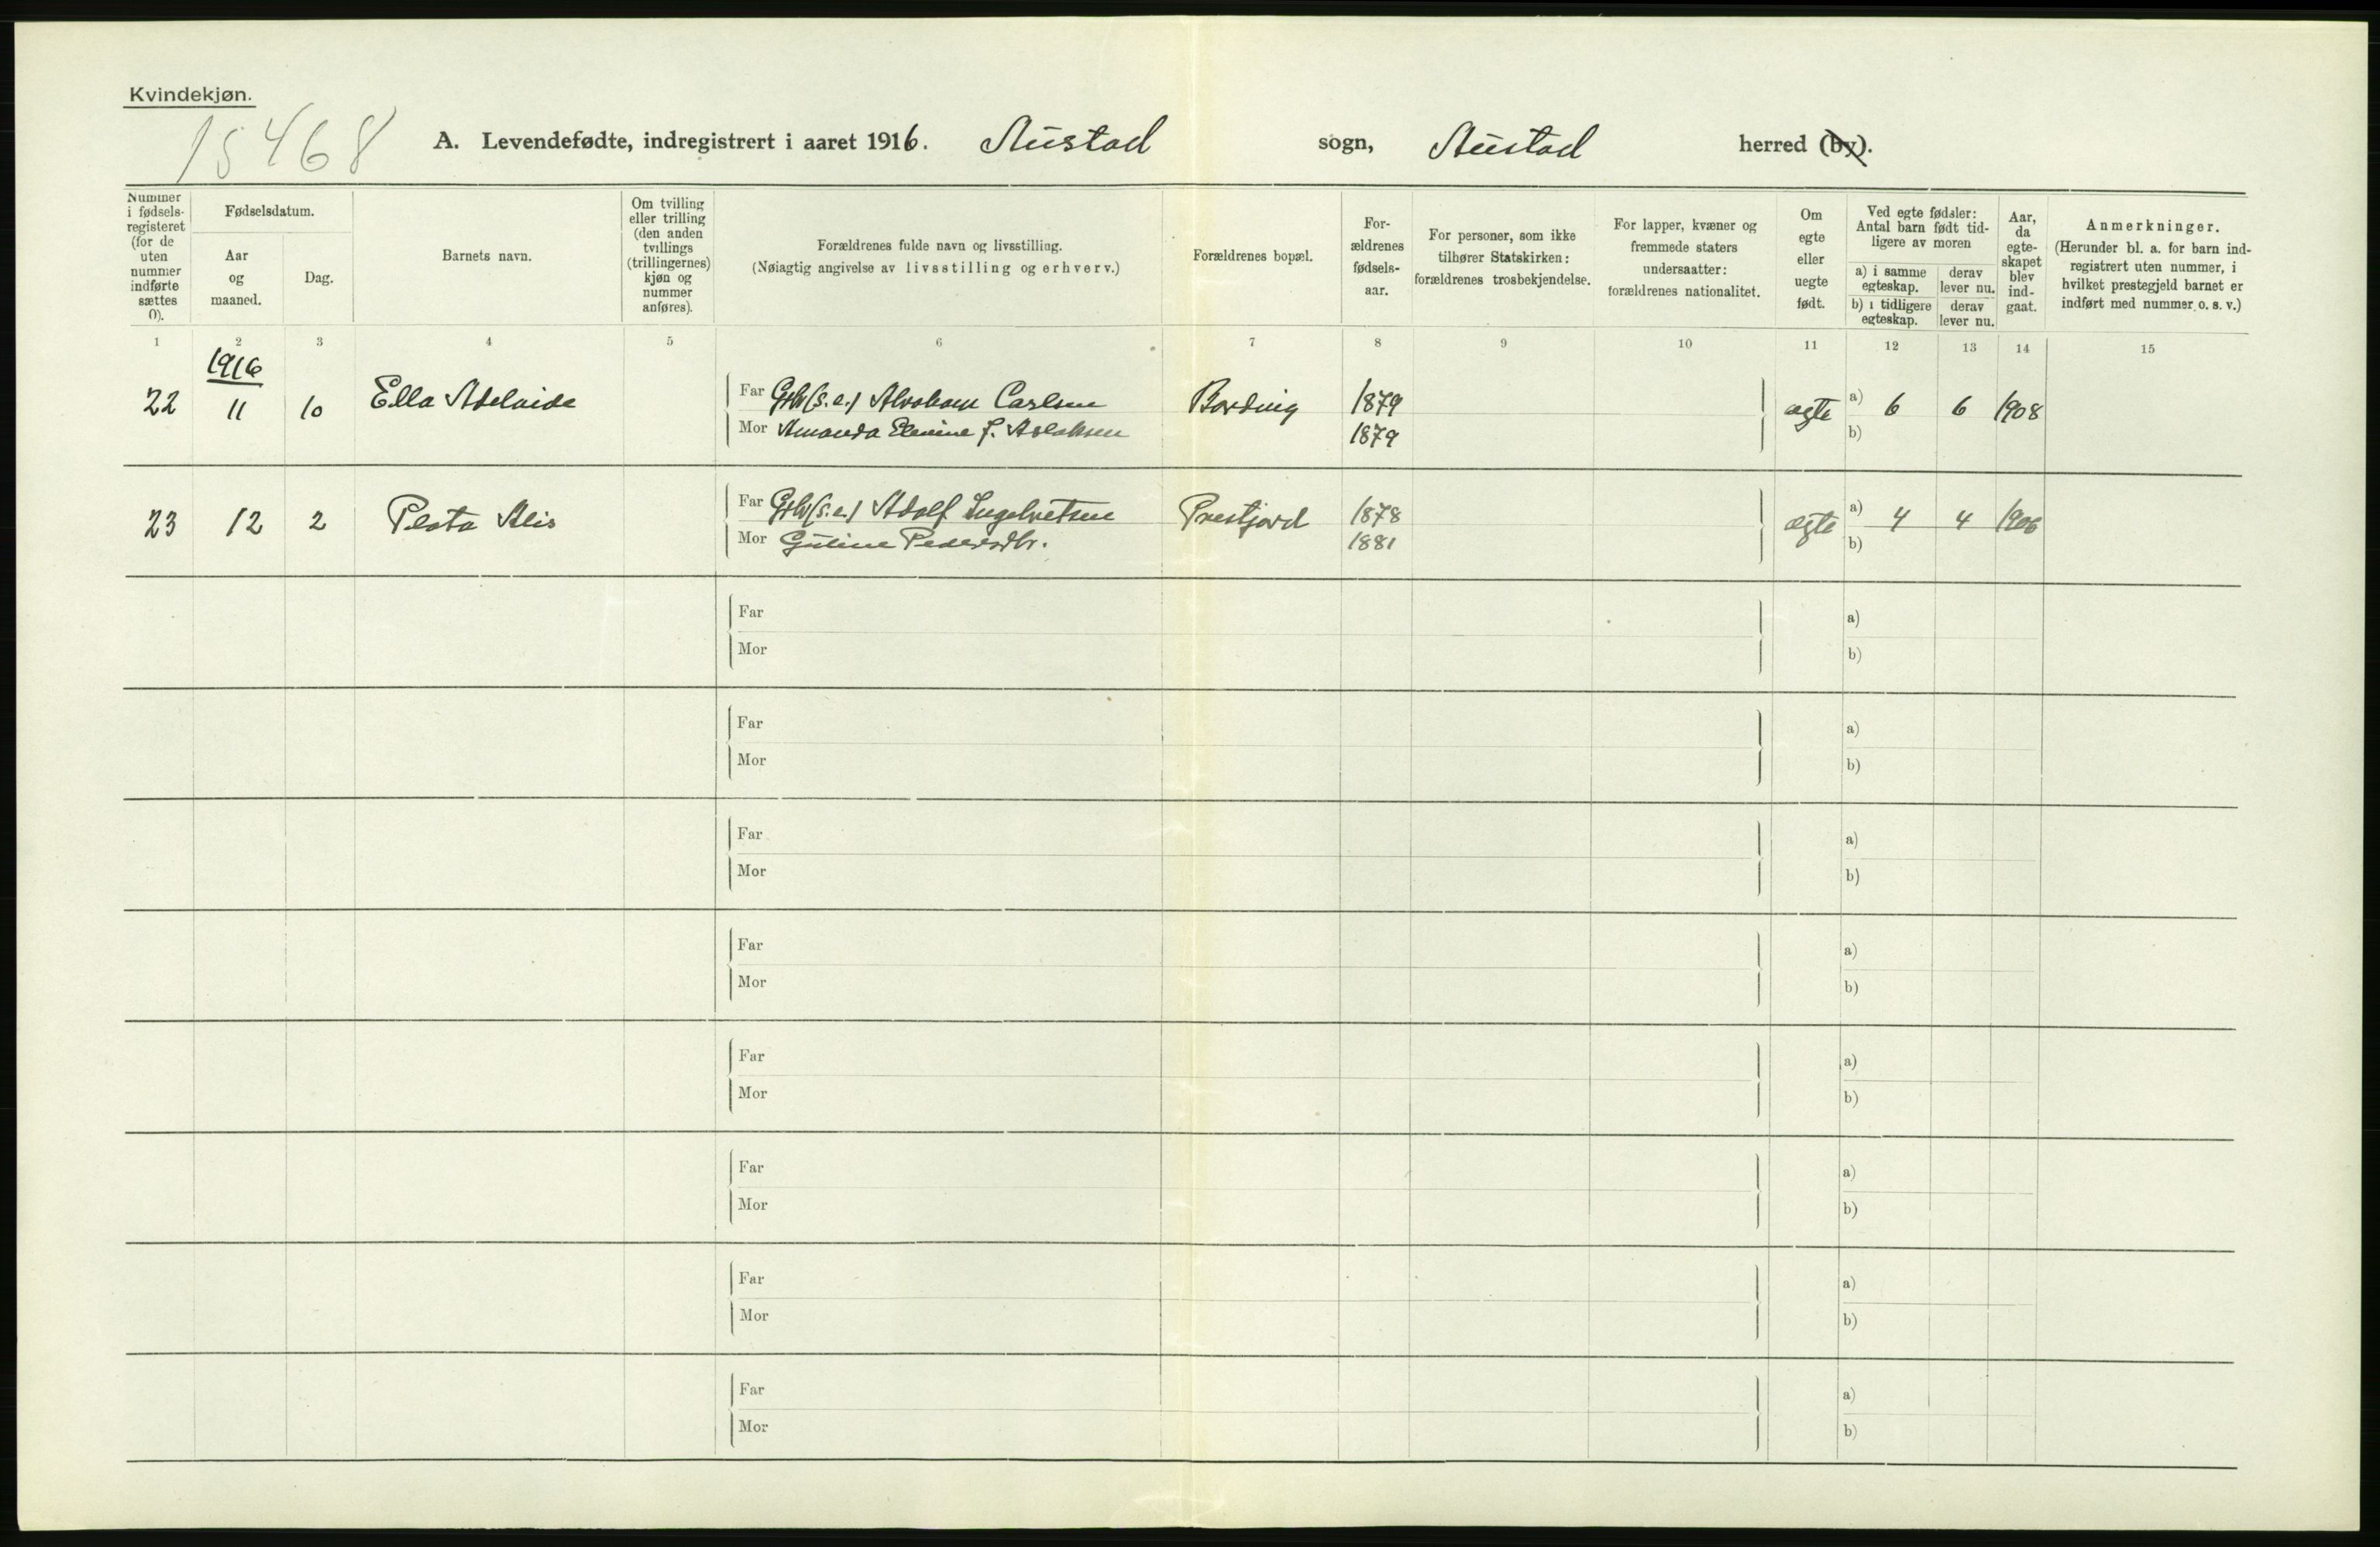 Kvindekjøn.
15468
A. Levendefødte, indregistrert i aaret 1916. Austad sogn, Austad herred (by).
Nummer i fødsels-registeret (for de uten nummer indførte sættes 0).
Fødselsdatum.
Aar og maaned.
Dag.
Barnets navn.
Om tvilling eller trilling (den anden tvillings (trillingernes) kjøn og nummer anføres).
Forældrenes fulde navn og livsstilling.
(Nøiagtig angivelse av livsstilling og erhverv.)
Forældrenes bopæl.
For-ældrenes fødsels-aar.
For personer, som ikke tilhører Statskirken: forældrenes trosbekjendelse.
For lapper, kvæner og fremmede staters undersaatter: forældrenes nationalitet.
Om egte eller uegte født.
Ved egte fødsler: Antal barn født tid-ligere av moren
a) i samme egteskap.
derav lever nu.
b) i tidligere egteskap.
derav lever nu.
Aar, da egte-skapet blev ind-gaat.
Anmerkninger.
(Herunder bl. a. for barn ind-registrert uten nummer, i hvilket prestegjeld barnet er indført med nummer o. s. v.)
1 2 3 4 5 6 7 8 9 10 11 12 13 14 15
1916
22 11 10 Ella Adelaide Far Grbr (s.e.) Abraham Carlsen Bording 1879 egte a) 6 6 1908
Mor Amanda Elenine f. Aslaksen 1879 b)
23 12 2 Far Grbr (s.e.) Adolf Ingebretsen Prestjord 1878 egte a) 4 4 1906
Mor Guline Pedersdtr. 1881 b)
Far a)
Mor b)
Far a)
Mor b)
Far a)
Mor b)
Far a)
Mor b)
Far a)
Mor b)
Far a)
Mor b)
Far a)
Mor b)
Far a)
Mor b)